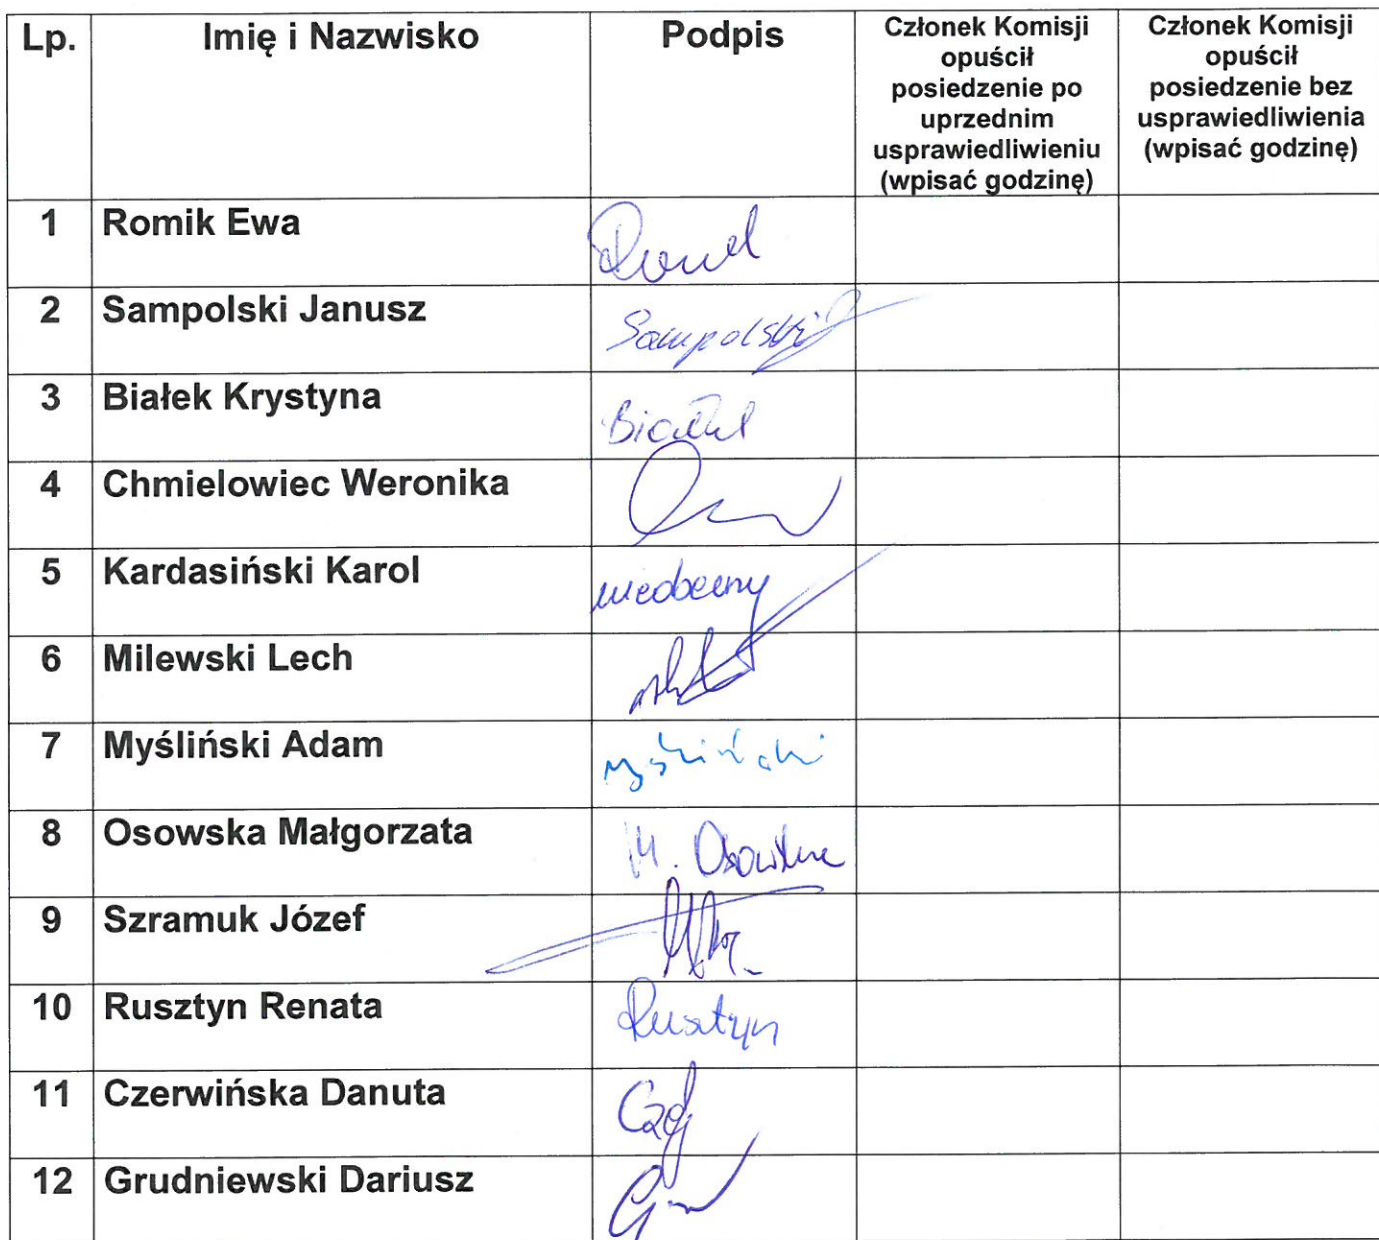 Lp. Imię i Nazwisko Podpis Członek Komisji opuścił posiedzenie po uprzednim usprawiedliwieniu (wpisać godzinę) Członek Komisji opuścił posiedzenie bez usprawiedliwienia (wpisać godzinę)
1 Romik Ewa
2 Sampolski Janusz Sampolski
3 Białek Krystyna Białek
4 Chmielowiec Weronika
5 Kardasiński Karol nieobecny
6 Milewski Lech
7 Myśliński Adam Myśliński
8 Osowska Małgorzata M. Osowska
9 Szramuk Józef
10 Rusztyn Renata Rusztyn
11 Czerwińska Danuta
12 Grudniewski Dariusz